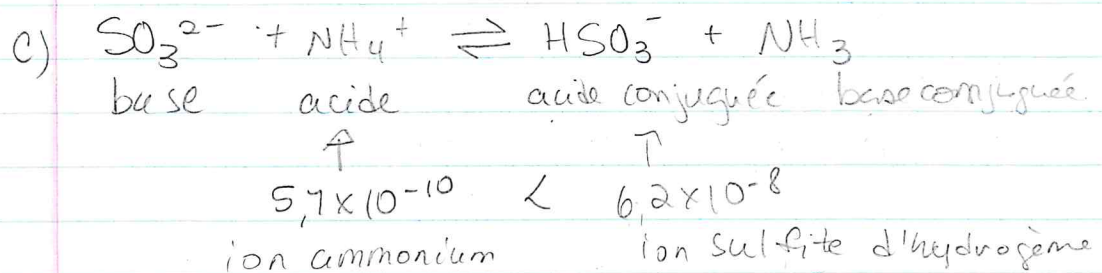 c) SO₃²⁻ + NH₄⁺ ⇌ HSO₃⁻ + NH₃
base acide acide conjuguée base conjuguée
↑ ↑
5,7×10⁻¹⁰ < 6,2×10⁻⁸
ion ammonium ion sulfite d'hydrogène